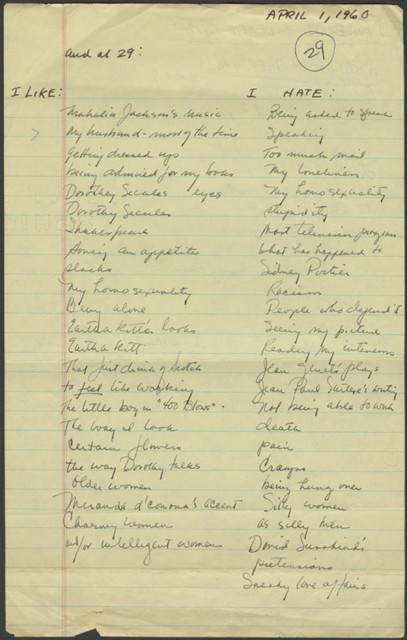 APRIL 1, 1960
29
and at 29:
I LIKE:
Mahalia Jackson's music
My husband - most of the time
getting dressed up
being admired for my looks
Dorothy Secules eyes
Dorothy Secules
Shakespeare
Having an appetite
slacks
My homosexuality
Being alone
Eartha Kitt's looks
Eartha Kitt
That first drink of Scotch
to feel like working
The little boy in "400 Blows".
The way I look
Certain flowers
the way Dorothy talks
Older women
Miranda d'Corona's accent
Charming women
and/or intelligent women
I HATE:
Being asked to speak
Speaking
Too much mail
My loneliness
My homosexuality
stupidity
Most television programs
What has happened to
Sidney Poitier
Racism
People who defend it
Seeing my picture
Reading my interviews
Jean Genet's plays
Jean Paul Sartre's writing
Not being able to work
death
pain
Cramps
Being hung over
Silly women
as silly men
David Susskind's
pretensions
Sneaky love affairs